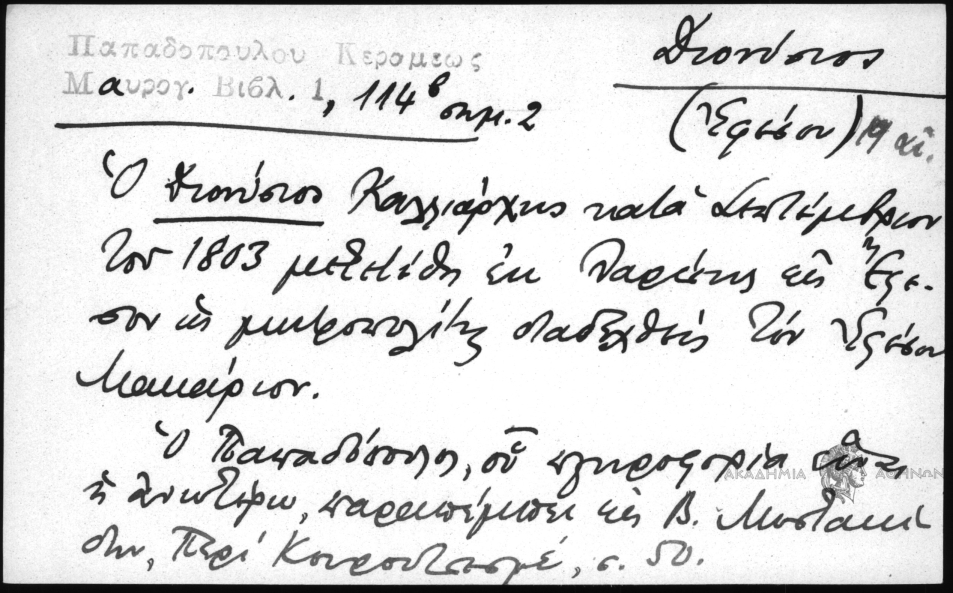 Παπαδοπουλου Κεραμεως
Διονύσιος
Μαυρογ. Βιβλ. 1, 114β σημ. 2
(Ἐφέσου) 19 αἰ.
Ὁ Διονύσιος Καλλιάρχης κατὰ Σεπτέμβριον
τοῦ 1803 μετετέθη ἐκ Λαρίσης εἰς Ἔφε-
σον ὡς μητροπολίτης διαδεχθεὶς τὸν Ἐφέσου
Μακάριον.
Ὁ Παπαδόπουλος, οὗ πληροφορία
ἡ ἀνωτέρω, παραπέμπει εἰς Β. Μυστακί
δην, Περὶ Κουρουτσεσμέ, σ. 50.
ΑΚΑΔΗΜΙΑ ΑΘΗΝΩΝ